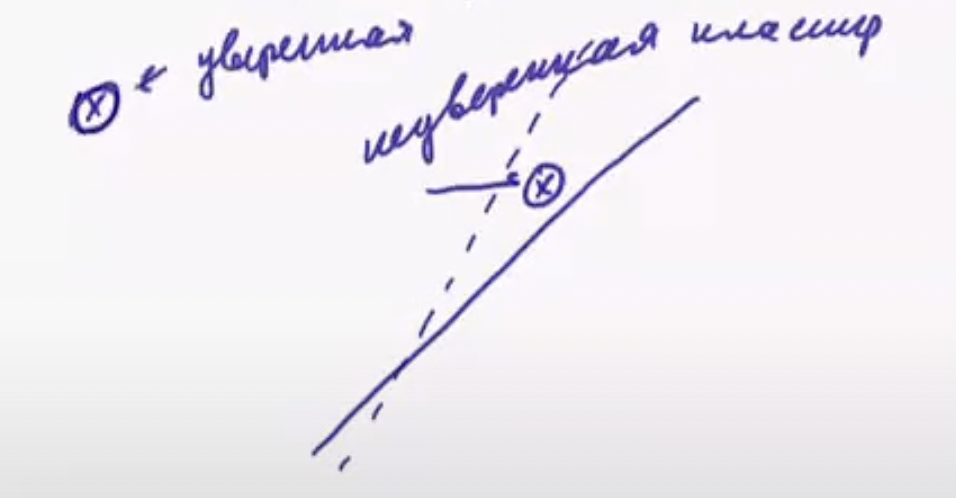 уверенная
неуверенная классиф